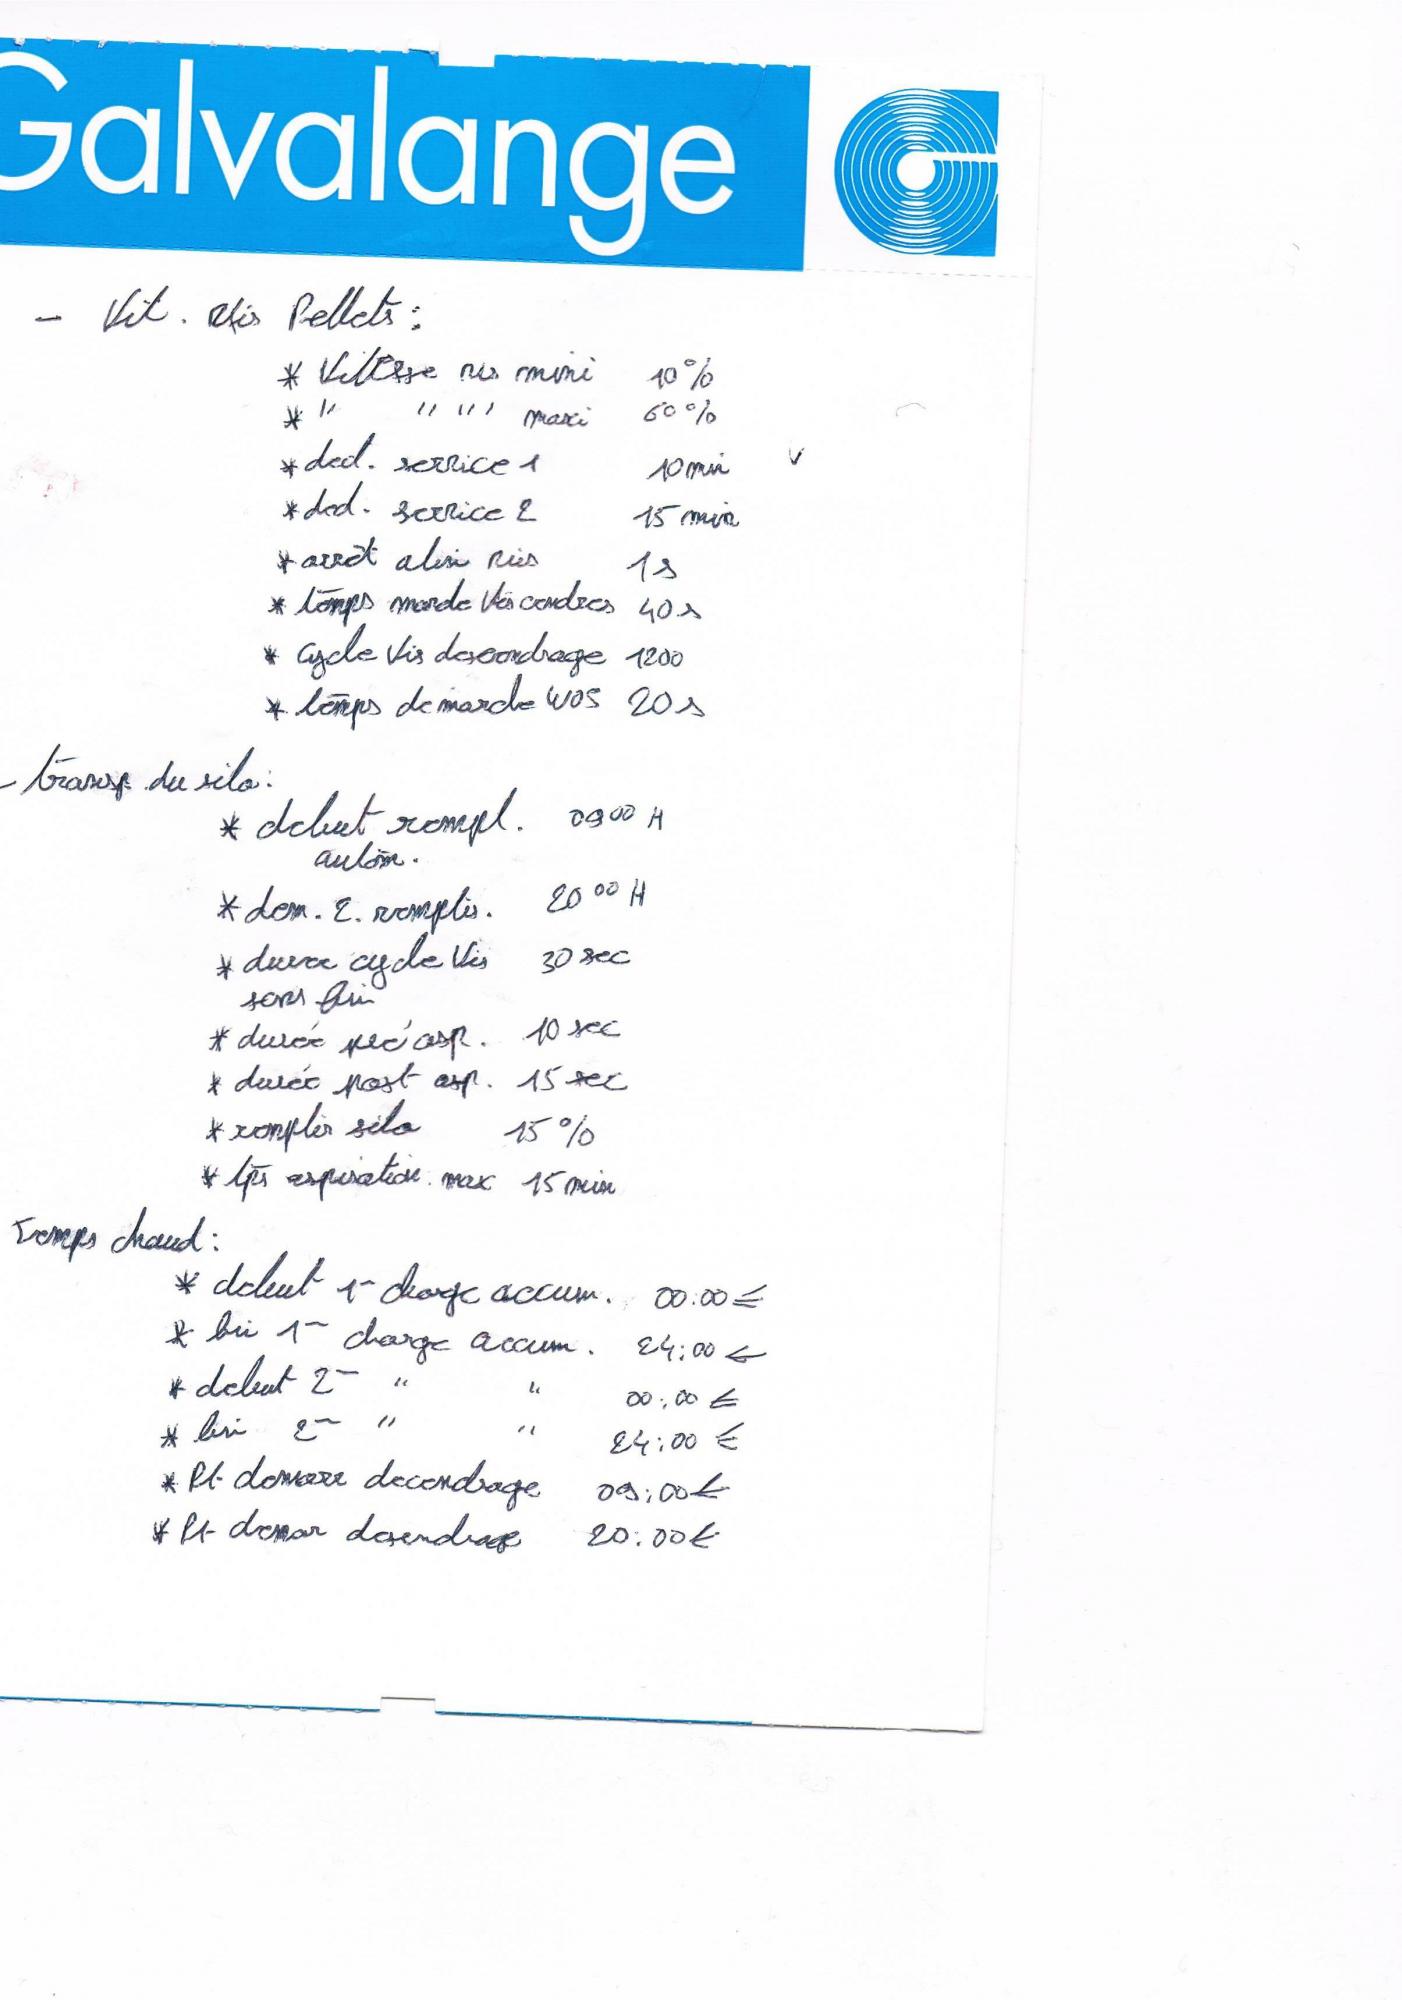 Galvalange
- Vit. Vis Pellets:
* Vitesse vis mini 10%
* " " " maxi 60%
* ded. service 1 10 min
* ded. service 2 15 min
* arrêt alim vis 1 s
* temps marche Vis cendres 40 s
* Cycle Vis decendrage 1200
* temps de marche WOS 20 s
- transp. du silo:
* debut rempl. 09 00 H
autom.
* dem. 2. remplis. 20 00 H
* duree cycle Vis 30 sec
sans fin
* durée pré asp. 10 sec
* durée post asp. 15 sec
* remplir silo 15%
* tps aspiration max 15 min
Temps chaud:
* debut 1 charge accum. 00:00
* fin 1 charge accum. 24:00
* debut 2 " " 00:00
* fin 2 " " 24:00
* Pt demarr decendrage 09:00
* Pt demar decendrage 20:00